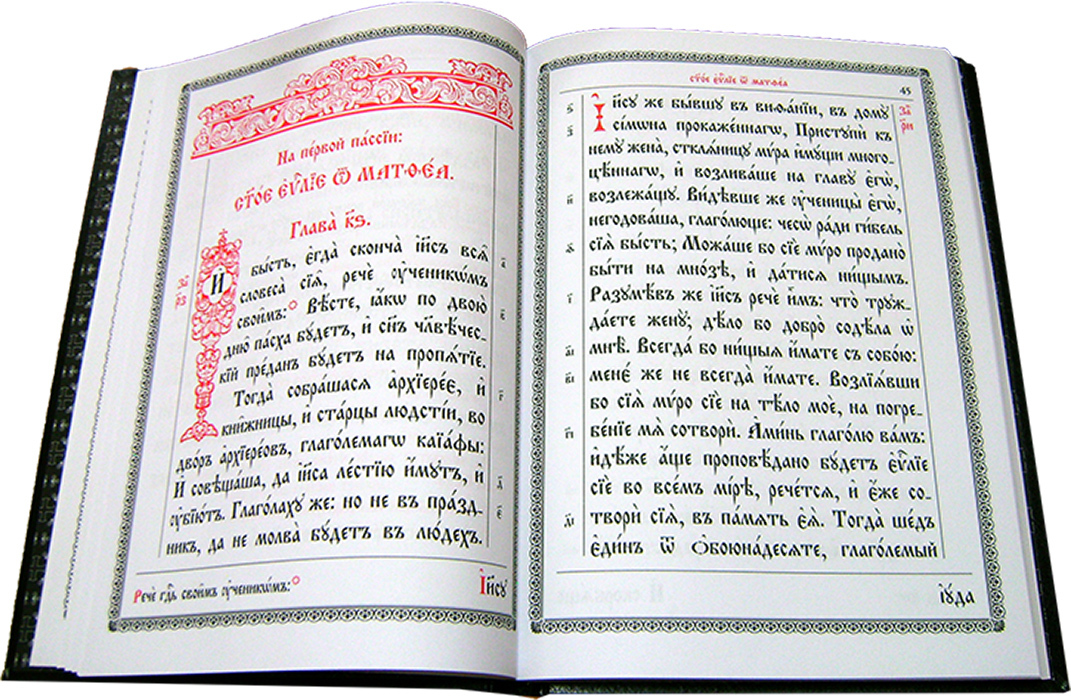 На пе́рвой па́ссїи:
СТ҃О́Е Е҆Ѵ҃ЛЇЕ Ѿ МАТѲЕ́А.
Глава̀ к҃ѕ.
И҆
бы́сть, є҆гда̀ сконча̀ і҆и҃съ всѧ̑
словеса̀ сїѧ̑, речѐ ᲂу҆ченикѡ́мъ
свои̑мъ:
Вѣ́сте, ꙗ҆́кѡ по двою̀
дню̑ па́сха бꙋ́детъ, и҆ сн҃ъ чл҃вѣ́чес-
кїй пре́данъ бꙋ́детъ на пропѧ́тїе.
Тогда̀ собра́шасѧ а҆рхїере́є, и҆
кни́жницы, и҆ ста́рцы лю́дстїи, во
дво́ръ а҆рхїере́овъ, глаго́лемагѡ каїа́фы:
И҆ совѣща́ша, да і҆и҃са ле́стїю и҆́мꙋтъ, и҆
ᲂу҆бїю́тъ. Глаго́лахꙋ же: но не въ пра́зд-
никъ, да не молва̀ бꙋ́детъ въ лю́дехъ.
Речѐ гд҇ь свои̑мъ ᲂу҆ченикѡ́мъ:
І҆и҃сꙋ
а҃
в҃
г҃
д҃
є҃
ст҃о́е є҆ѵ҃лїе ѿ матѳе́а
45
І҆и҃сꙋ же бы́вшꙋ въ виѳа́нїи, въ домꙋ̀
сі́мѡна прокаже́ннагѡ, Пристꙋпѝ къ
немꙋ̀ жена̀, сткля́ницꙋ мѵ́ра и҆мꙋ́щи много-
цѣ́ннагѡ, и҆ возлива́ше на главꙋ̀ є҆гѡ̀,
возлежа́щꙋ. Ви́дѣвше же ᲂу҆ченицы̀ є҆гѡ̀,
негодова́ша, глаго́люще: чесѡ̀ ра́ди ги́бель
сїѧ̀ бы́сть; Можа́ше бо сїѐ мѵ́ро про́дано
бы́ти на мно́зѣ, и҆ да́тисѧ ни́щымъ.
Разꙋмѣ́въ же і҆и҃съ речѐ и҆̀мъ: что̀ трꙋж-
да́ете женꙋ̀; дѣ́ло бо добро̀ содѣ́ла ѡ҆
мнѣ̀. Всегда́ бо ни́щыѧ и҆́мате съ собо́ю:
мене́ же не всегда̀ и҆́мате. Возлїѧ́вши
бо сїѧ̀ мѵ́ро сїѐ на тѣ́ло моѐ, на погре-
бе́нїе мѧ̀ сотворѝ. А҆ми́нь глаго́лю ва́мъ:
и҆дѣ́же а҆́ще проповѣ́дано бꙋ́детъ є҆ѵ҃лїе
сїѐ во все́мъ мі́рѣ, рече́тсѧ, и҆ є҆́же со-
творѝ сїѧ̀, въ па́мѧть є҆ѧ̀. Тогда̀ ше́дъ
є҆ди́нъ ѿ ѻ҆боюна́десѧте, глаго́лемый
і҆ꙋ́да
ѕ҃
з҃
и҃
ѳ҃
і҃
а҃і
в҃і
г҃і
д҃і